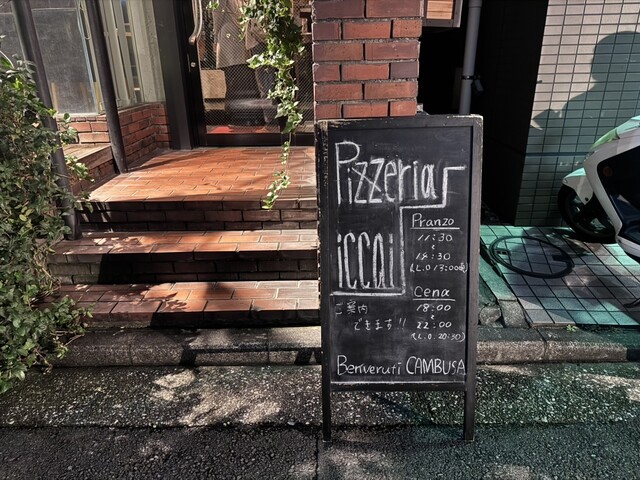 Pizzeria
iccai
Pranzo
11:30
~
14:30
(L.O 13:00頃)
Cena
18:00
~
22:00
(L.O 20:30)
ご案内
できます!!
Benveruti CAMBUSA